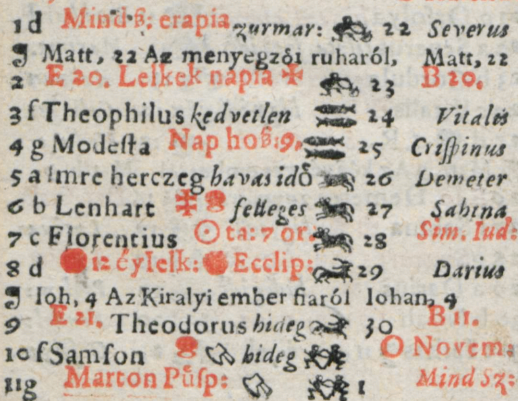 1 d Mind ß: erapia zurmar: 22 Severus
Matt, 22 Az menyegzöi ruharól, Matt, 22
2 E 20. Lelkek napia ✠ 23 B 20.
3 f Theophilus kedvetlen 24 Vitalis
4 g Modesta Nap hoß: 9. 25 Criſpinus
5 a Imre herczeg havas idö 26 Demeter
6 b Lenhart ✠ felleges 27 Sabina
7 c Florentius ☉ta: 7 or. 28 Sim. Iud:
8 d 12 Ecclip: 29 Darius
Ioh, 4 Az Kiralyi ember fiaról Iohan, 4
9 E 21. Theodorus hideg 30 B 11.
10 f Samſon hideg O Novem:
11 g Marton Puſp: 1 Mind Sz: